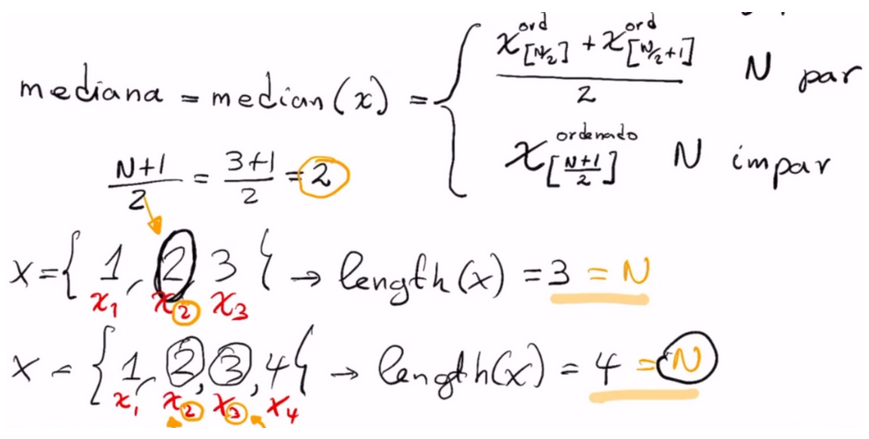 mediana = median(x) = { (x^ord_[N/2] + x^ord_[N/2+1]) / 2 N par
x^ordenado_[(N+1)/2] N impar
(N+1)/2 = (3+1)/2 = 2
x = { 1, 2, 3 } → length(x) = 3 = N
x₁ x₂ x₃
x = { 1, 2, 3, 4 } → length(x) = 4 = N
x₁ x₂ x₃ x₄